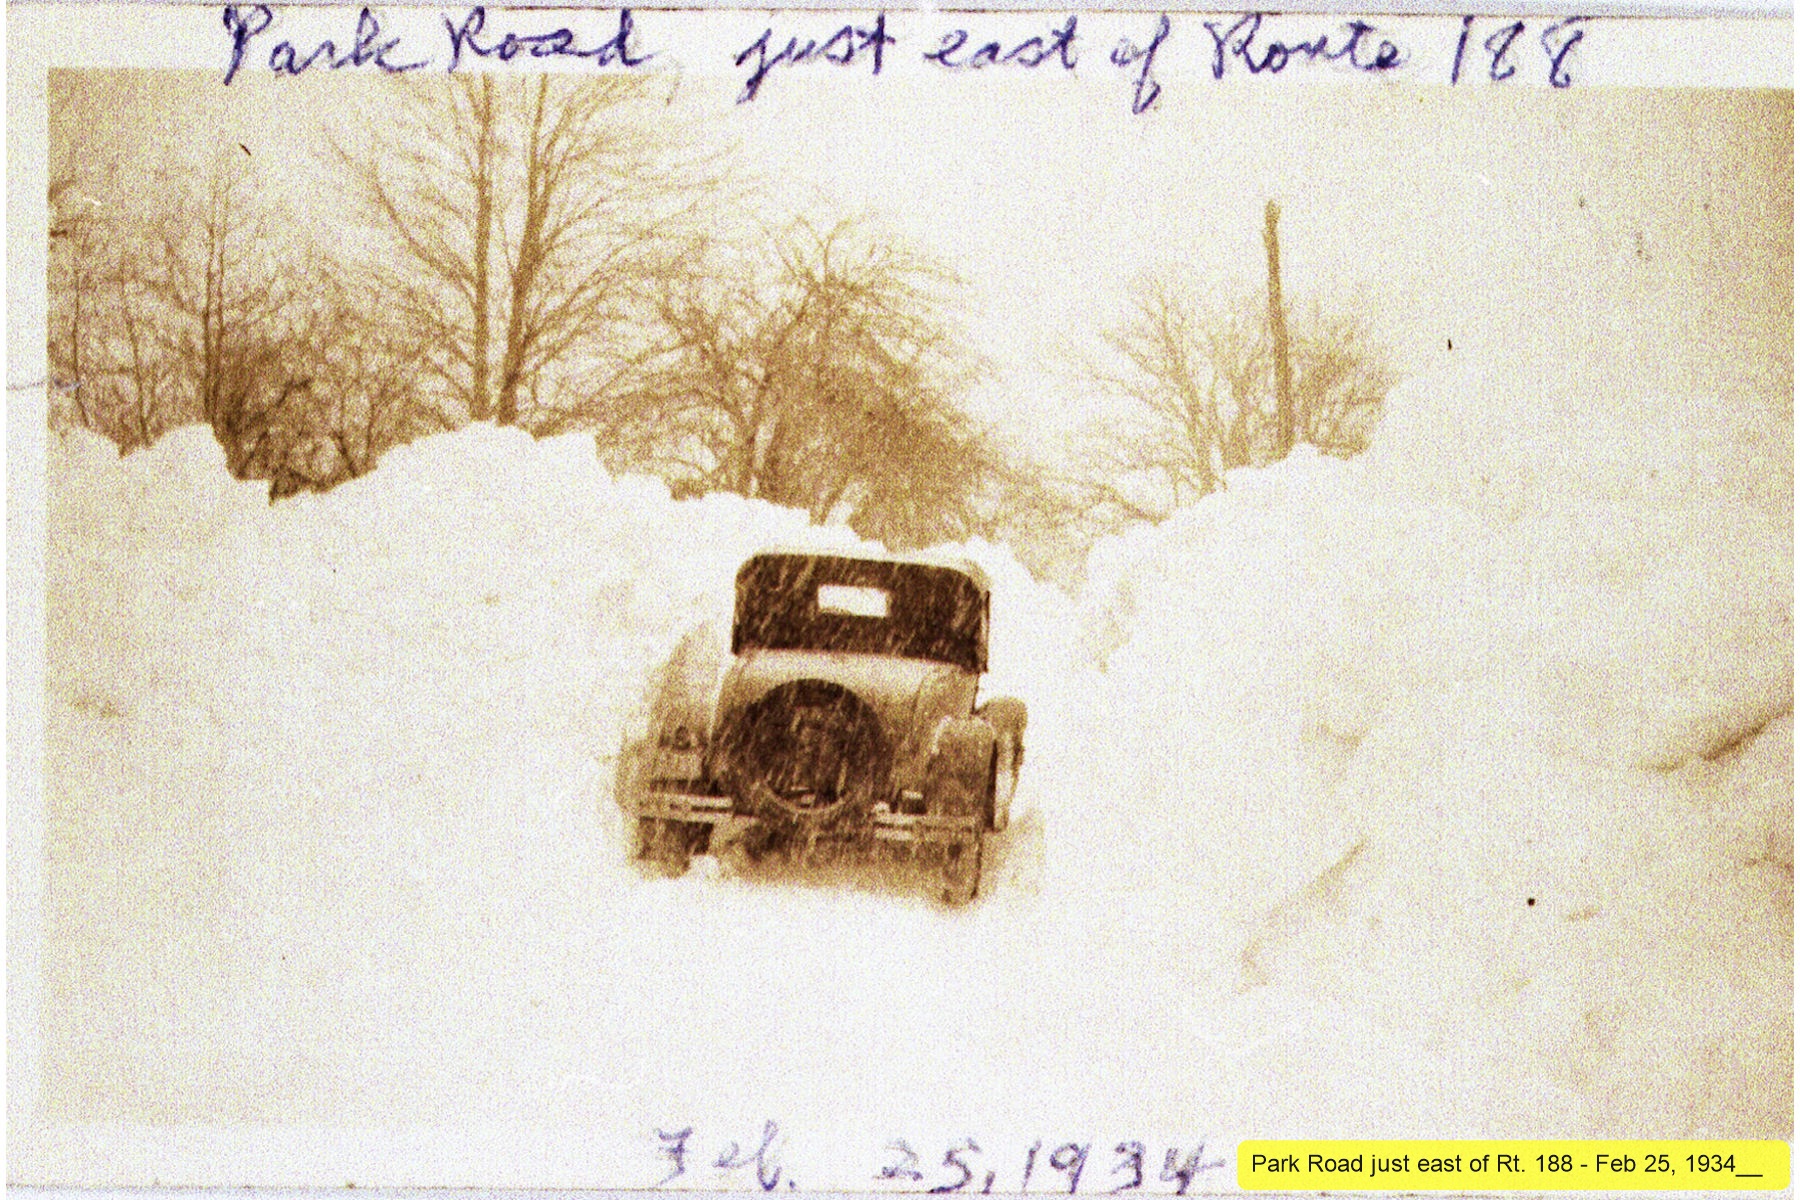 Park Road, just east of Route 188
Feb. 25, 1934
Park Road just east of Rt. 188 - Feb 25, 1934__